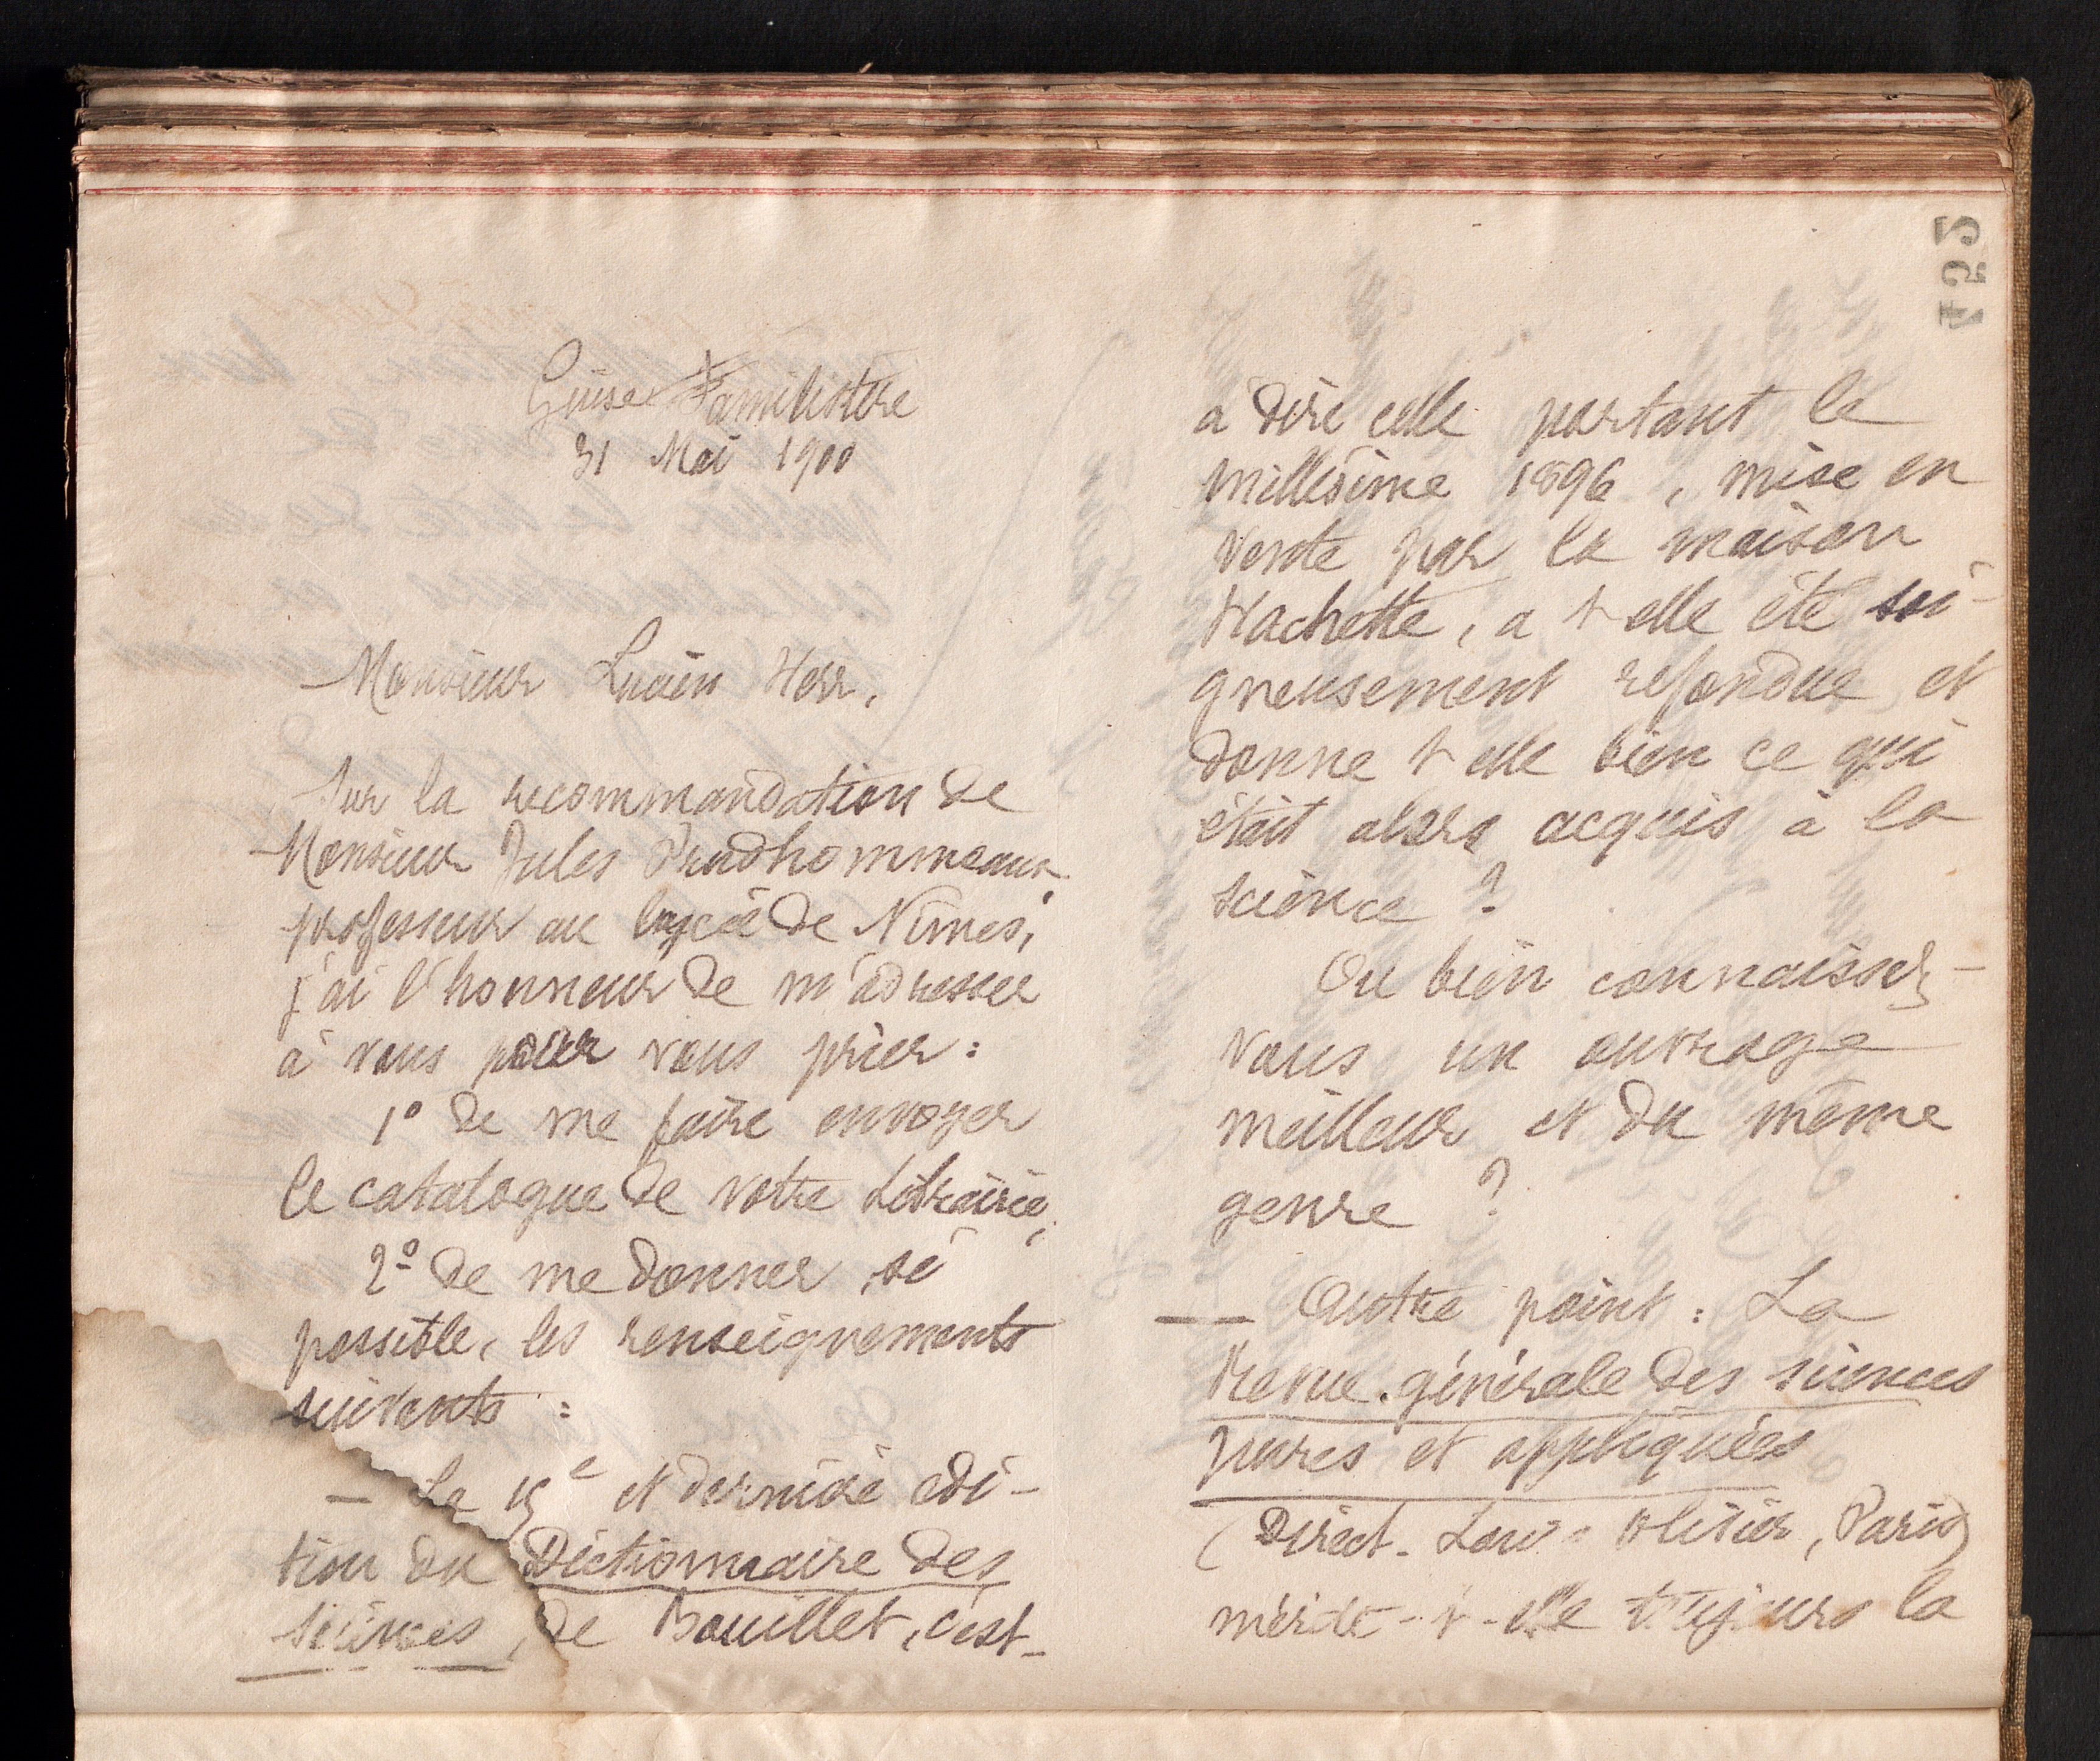 Guise Familistère
31 Mai 1900
Monsieur Lucien Herr,
Sur la recommandation de
Monsieur Jules Prudhommeaux
professeur au lycée de Nîmes,
j'ai l'honneur de m'adresser
à vous pour vous prier :
1° de me faire envoyer
le catalogue de votre Librairie,
2° de me donner, si
possible, les renseignements
suivants :
— La 15e et dernière édi-
tion du Dictionnaire des
sciences, de Bouillet, c'est-
à dire celle portant le
millésime 1896, mise en
vente par la maison
Hachette, a t elle été soi-
gneusement refondue et
donne t elle bien ce qui
était alors acquis à la
science ?
Ou bien connaissez-
vous un ouvrage
meilleur et du même
genre ?
— Autre point : La
Revue générale des sciences
pures et appliquées
(Direct. Louis Olivier, Paris)
mérite-t-elle toujours la
252